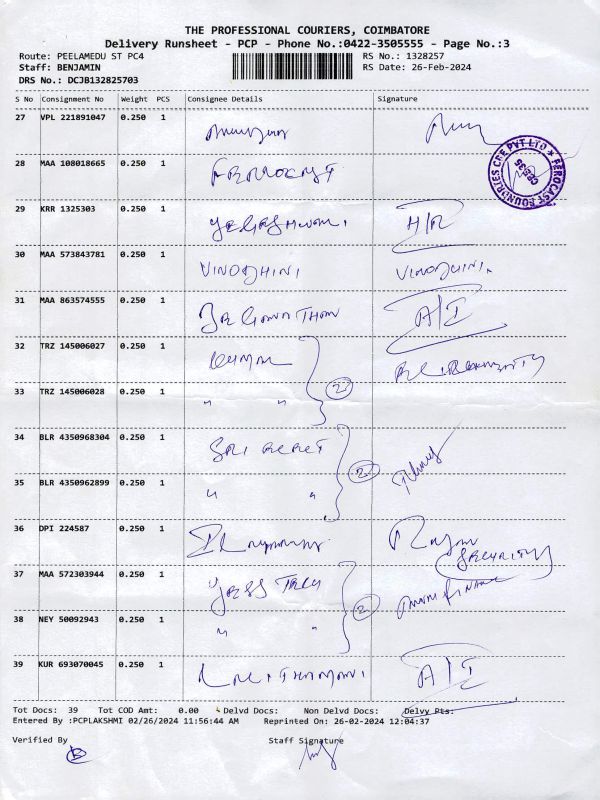 THE PROFESSIONAL COURIERS, COIMBATORE
Delivery Runsheet - PCP - Phone No.:0422-3505555 - Page No.:3
Route: PEELAMEDU ST PC4 RS No.: 1328257
Staff: BENJAMIN RS Date: 26-Feb-2024
DRS No.: DCJB132825703
S No Consignment No Weight PCS Consignee Details Signature
27 VPL 221891047 0.250 1
28 MAA 108018665 0.250 1
FEROCAST FOUNDRIES CBE PVT LTD ★
CBE 35
29 KRR 1325303 0.250 1 H/R
30 MAA 573843781 0.250 1 VINODHINI VINODHINI.
31 MAA 863574555 0.250 1 A/I
32 TRZ 145006027 0.250 1
33 TRZ 145006028 0.250 1 " " 2
34 BLR 4350968304 0.250 1 SRI
35 BLR 4350962899 0.250 1 " " 2
36 DPI 224587 0.250 1 SECURITY
37 MAA 572303944 0.250 1 FINANCE
38 NEY 50092943 0.250 1 " " 2
39 KUR 693070045 0.250 1 A/I
Tot Docs: 39 Tot COD Amt: 0.00 Delvd Docs: Non Delvd Docs: Delvy Pts:
Entered By :PCPLAKSHMI 02/26/2024 11:56:44 AM Reprinted On: 26-02-2024 12:04:37
Verified By Staff Signature